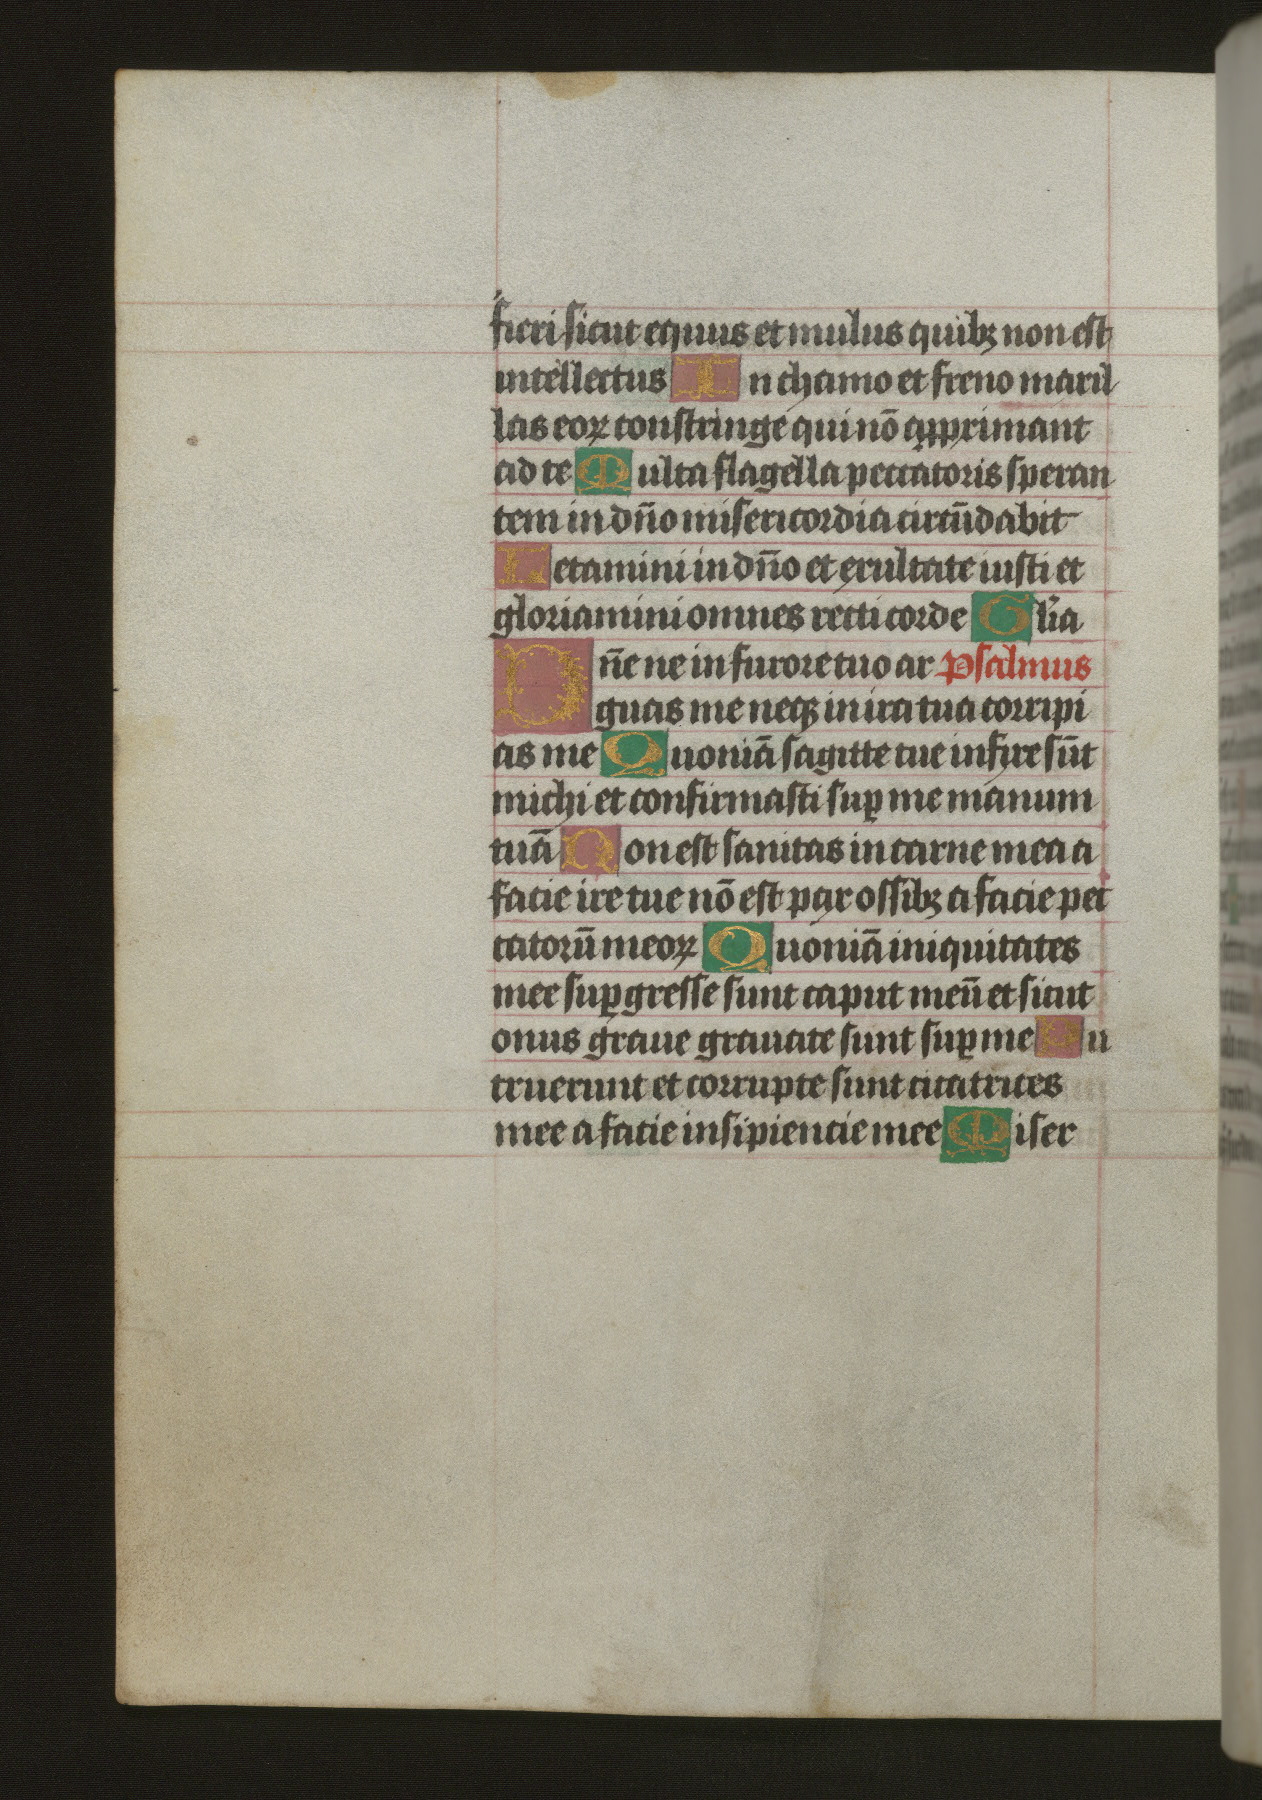 fieri sicut equus et mulus quibꝫ non est
intellectus In chamo et freno maxil
las eoꝝ constringe qui nō approximant
ad te Multa flagella peccatoris speran
tem in dn̄o misericordia circūdabit
Letamini in dn̄o et exultate iusti et
gloriamini omnes recti corde Glīa
Dn̄e ne in furore tuo ar Psalmus
guas me neqꝫ in ira tua corripi
as me Quoniā sagitte tue infixe sūt
michi et confirmasti suꝑ me manum
tuā Non est sanitas in carne mea a
facie ire tue nō est pax ossibꝫ a facie pec
catorū meoꝝ Quoniā iniquitates
mee suꝑgresse sunt caput meū et sicut
onus graue grauate sunt suꝑ me Pu
truerunt et corrupte sunt cicatrices
mee a facie insipiencie mee Miser